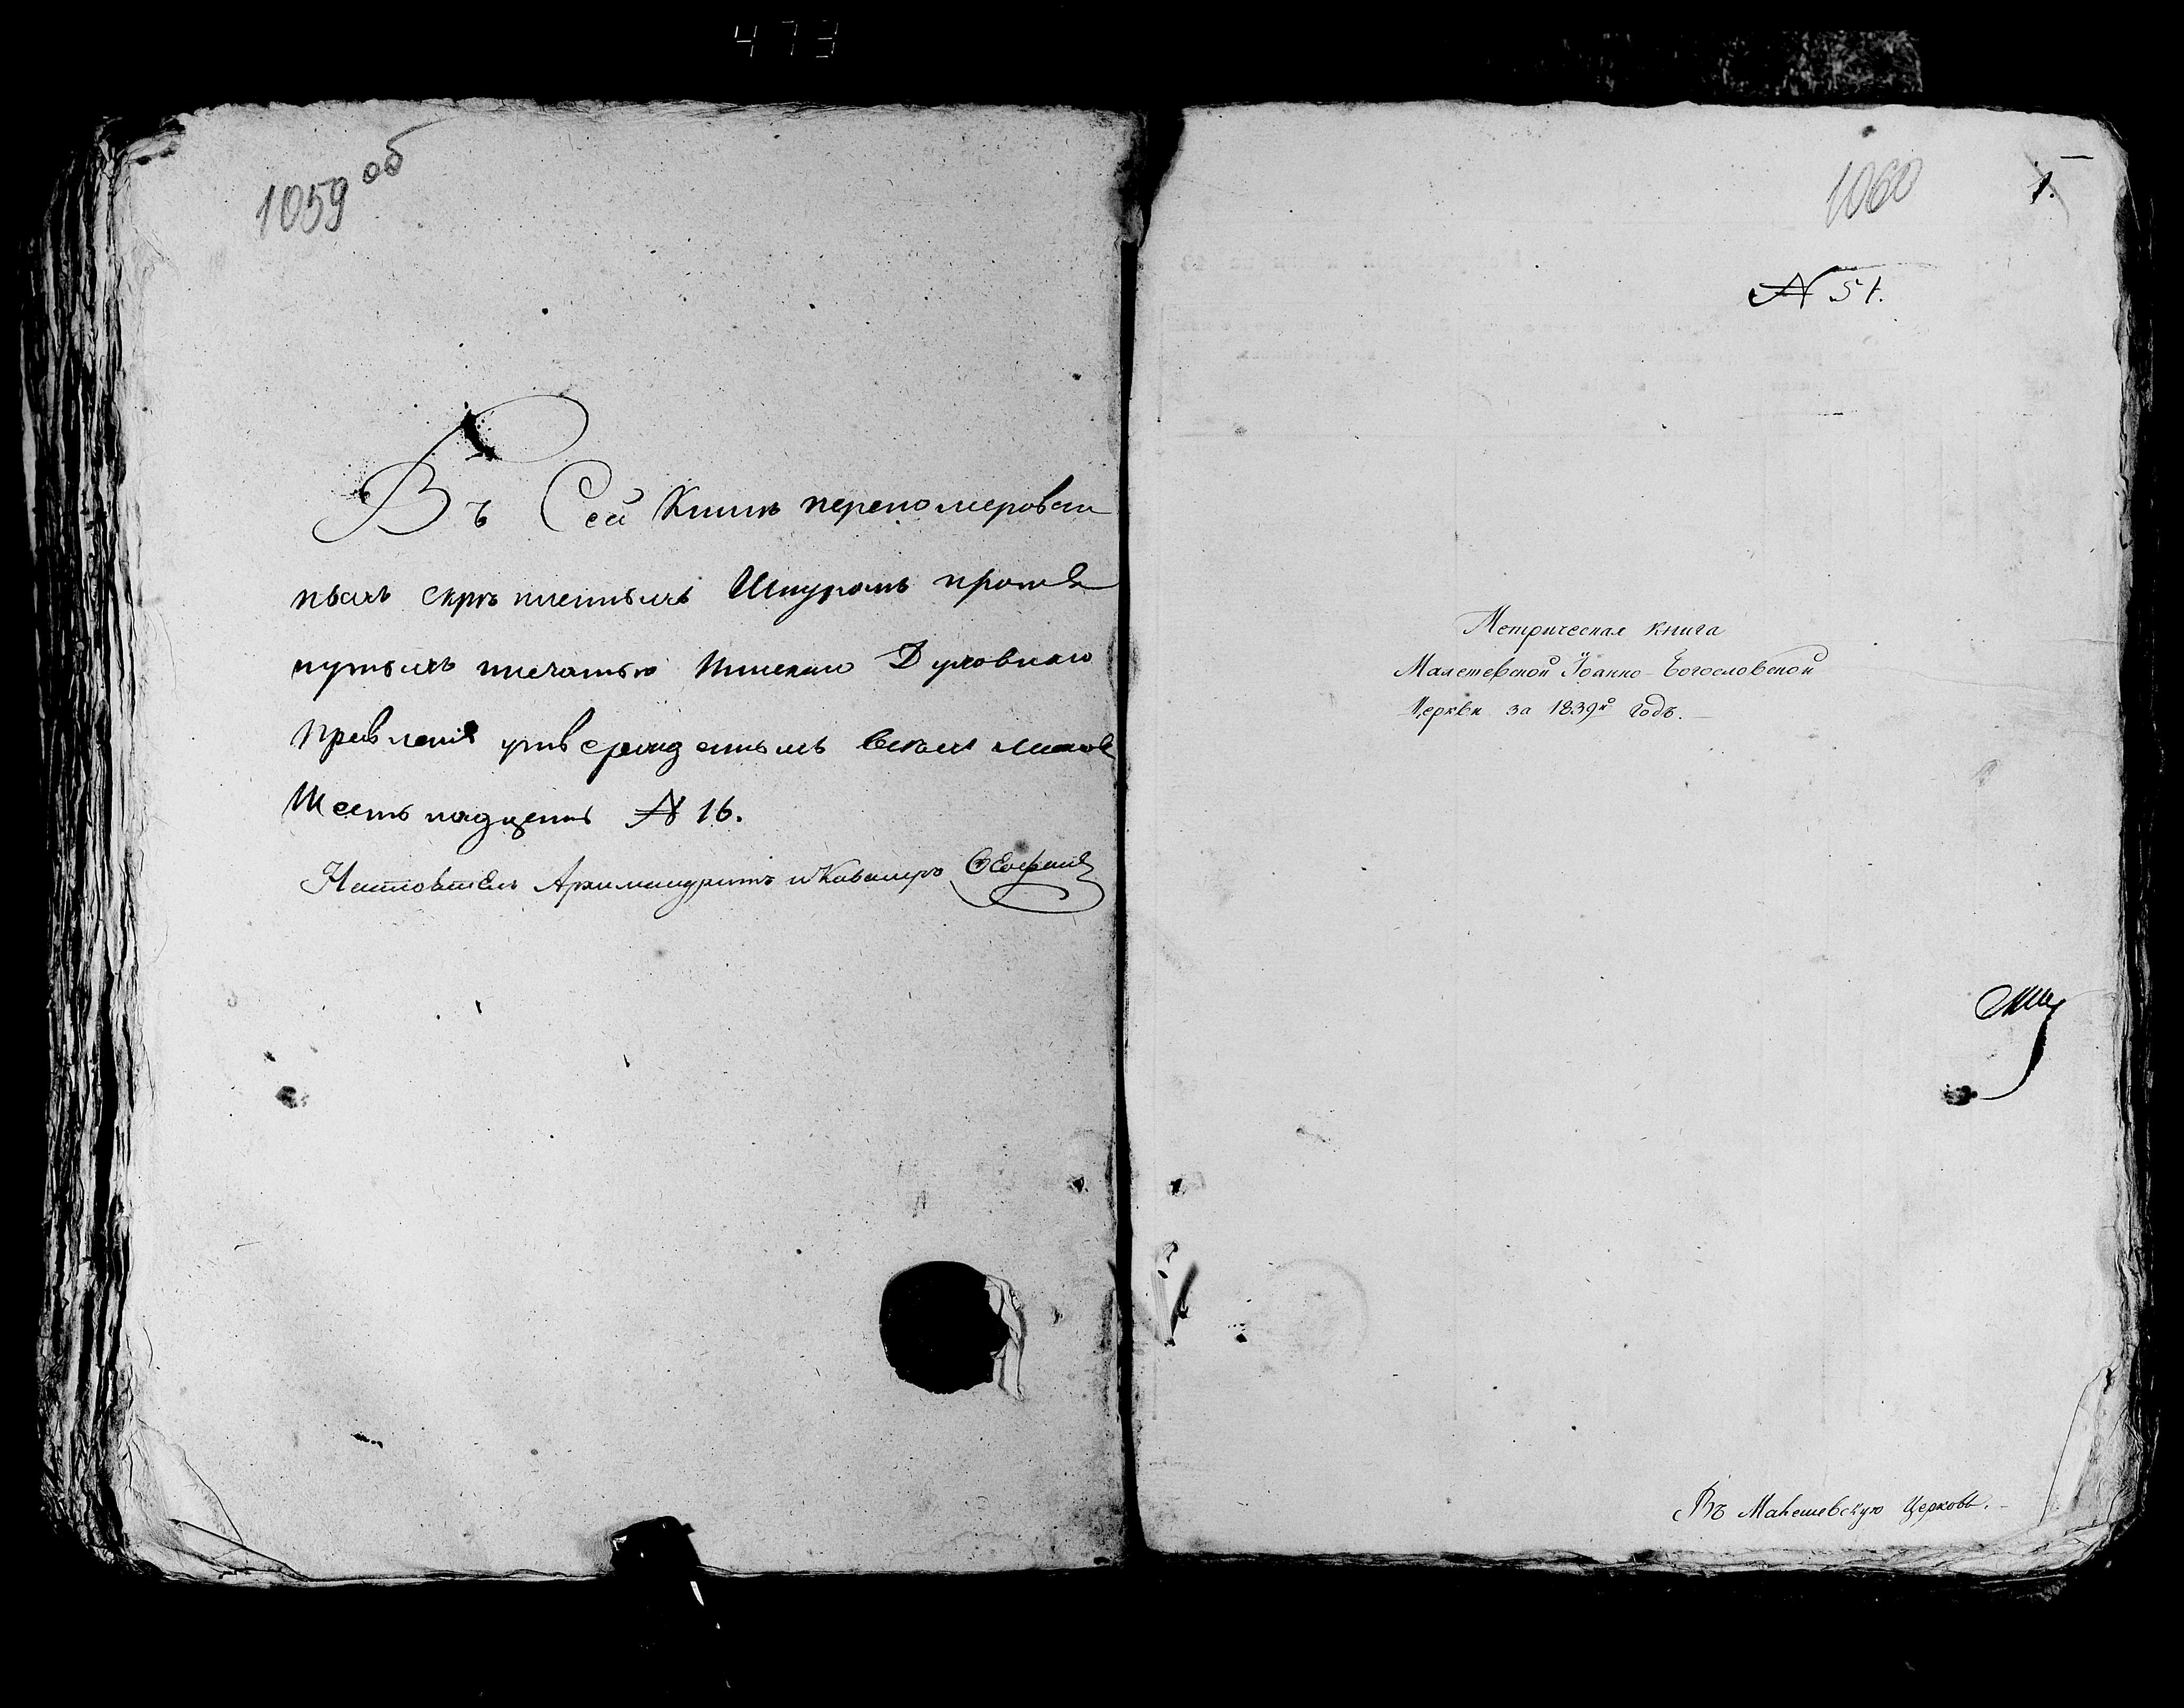 473
1059 об
Въ Сей Книгѣ перепомерован
ныхъ скрѣпленныхъ Шнуромъ протя
нутыхъ печатью Пинскаго Духовнаго
Правленія утвержденныхъ всѣхъ листовъ
Шестьнадцеть № 16.
Настоятель Архимандритъ и Кавалеръ
1060
1.
№ 51.
Метрическая книга
Малетевской Іоанно-Богословской
Церкви за 1839й годъ.
Въ Малешевскую Церковь.